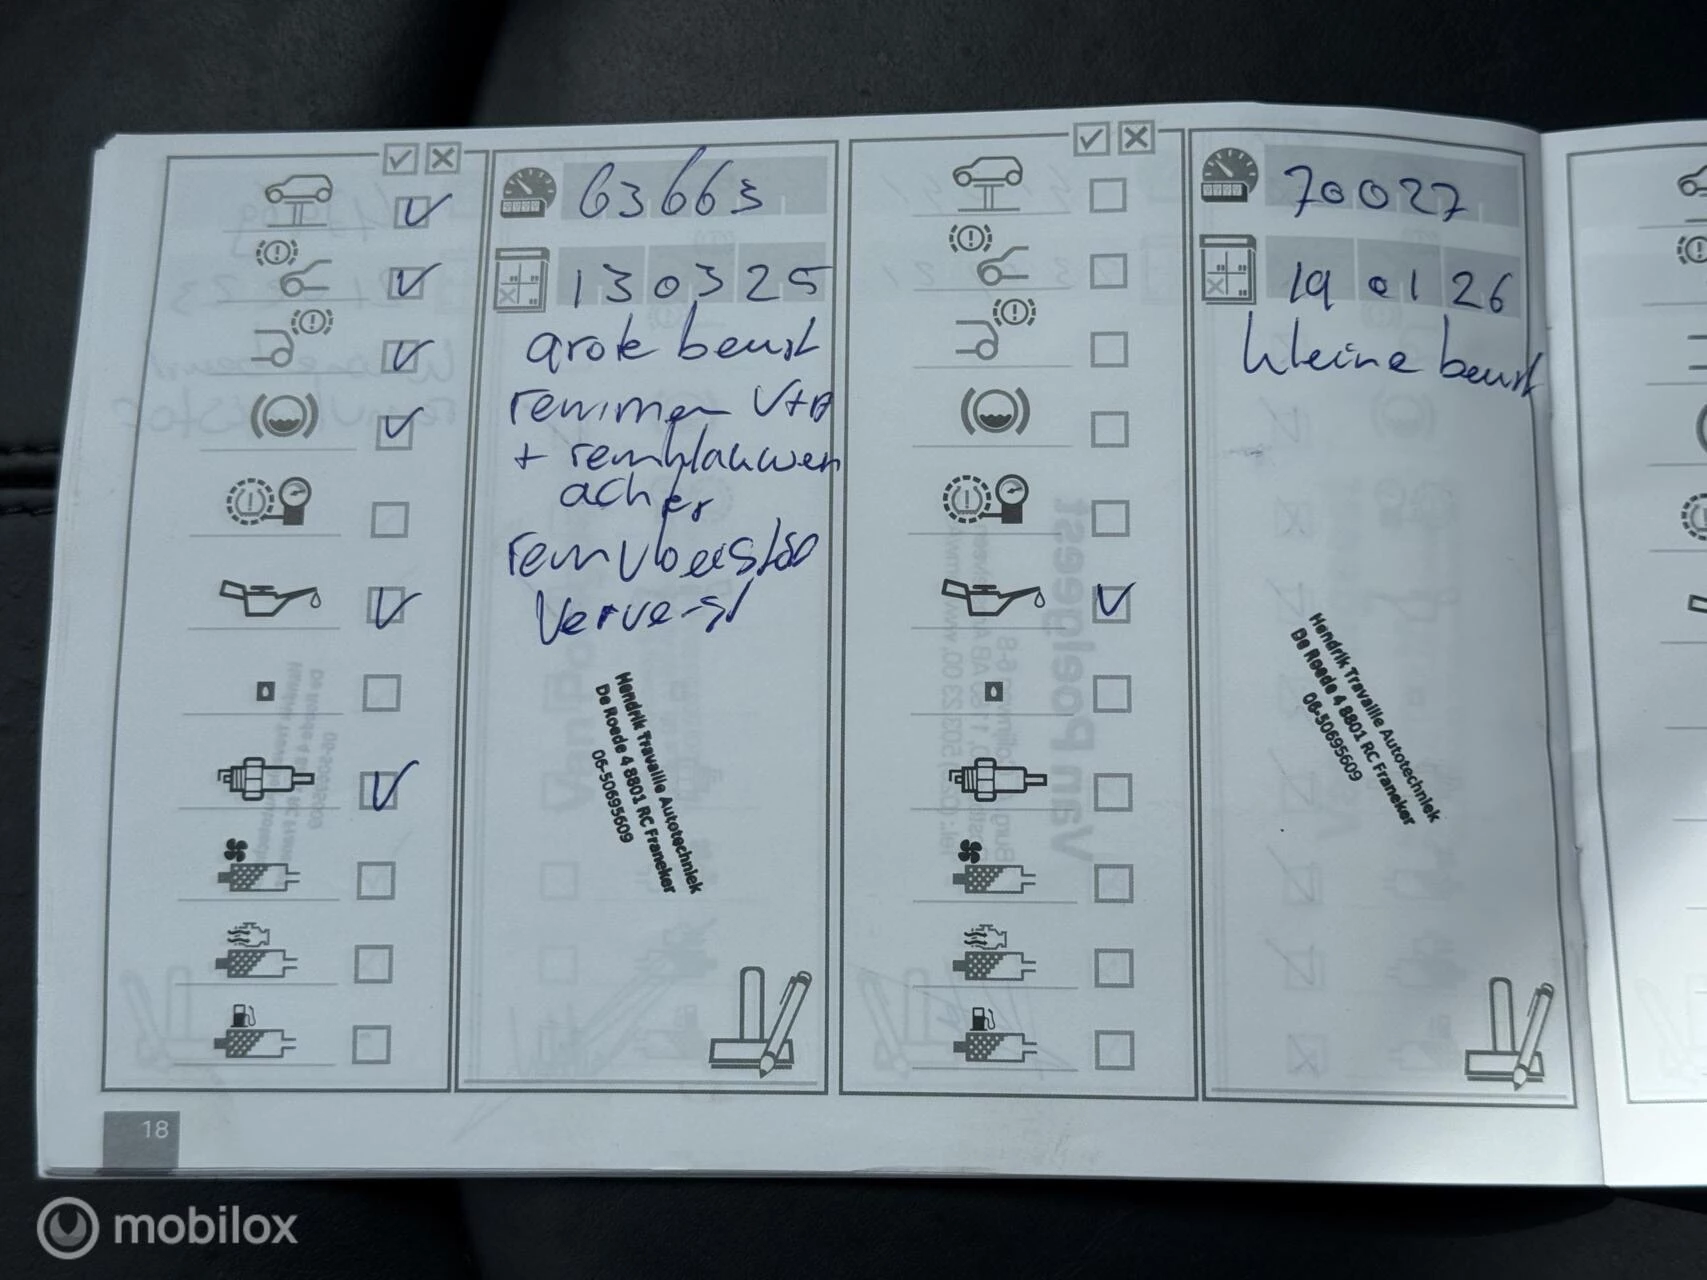 63663
130325
grote beurt
remmen V+A
+ remblauwen
achter
remvloeistof
ververst
Hendrik Travaille Autotechniek
De Roede 4 8801 RC Franeker
06-50695609
70027
19 01 26
kleine beurt
Van Poelgeest
Hendrik Travaille Autotechniek
De Roede 4 8801 RC Franeker
06-50695609
18
mobilox